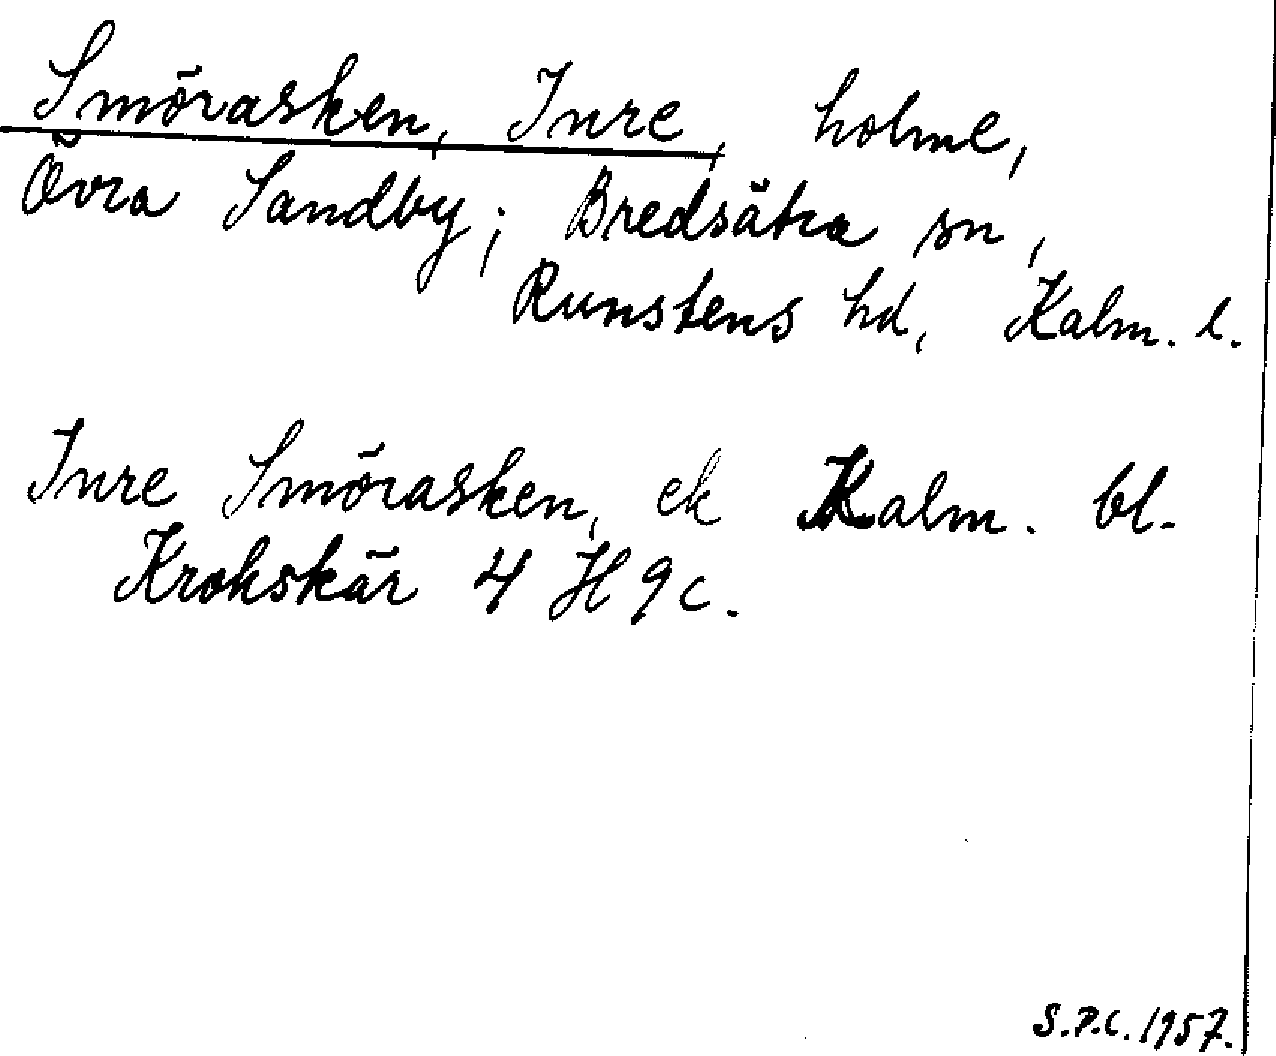 Smörasken, Inre, holme,
Övra Sandby; Bredsätra sn,
Runstens hd, Kalm. l.
Inre Smörasken, ek Kalm. bl.
Krokskär 4 H 9c.
S.P.C. 1957.